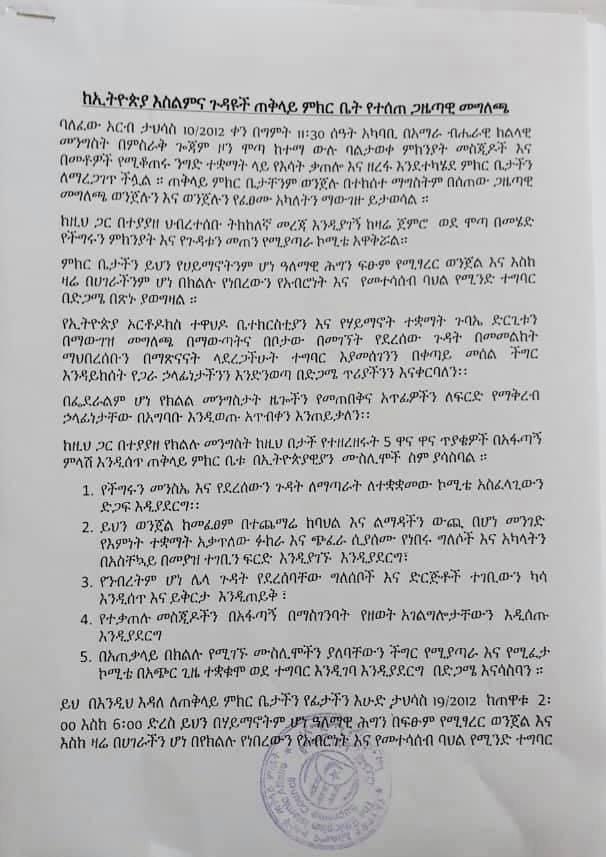 ከኢትዮጵያ እስልምና ጉዳዮች ጠቅላይ ምክር ቤት የተሰጠ ጋዜጣዊ መግለጫ
ባለፈው አርብ ታህሳስ 10/2012 ቀን በግምት 11፡30 ሰዓት አካባቢ በአማራ ብሔራዊ ክልላዊ
መንግስት በምስራቅ ጐጃም ዞን ሞጣ ከተማ ውሉ ባልታወቀ ምክንያት መስጂዶች እና
በመቶዎች የሚቆጠሩ ንግድ ተቋማት ላይ የእሳት ቃጠሎ እና ዘረፋ እንደተካሄደ ምክር ቤታችን
ለማረጋገጥ ችሏል ። ጠቅላይ ምክር ቤታችንም ወንጀሉ በተከሰተ ማግስትም በሰጠው ጋዜጣዊ
መግለጫ ወንጀሉን እና ወንጀሉን የፈፀሙ አካለትን ማውገዙ ይታወሳል ።
ከዚህ ጋር በተያያዘ ህብረተሰቡ ትክክለኛ መረጃ እንዲያገኝ ከዛሬ ጀምሮ ወደ ሞጣ በመሄድ
የችግሩን ምክንያት እና የጉዳቱን መጠን የሚያጣራ ኮሚቴ አዋቅሯል።
ምክር ቤታችን ይህን የሀይማኖትንም ሆነ ዓለማዊ ሕግን ፍፁም የሚፃረር ወንጀል እና እስከ
ዛሬ በሀገራችንም ሆነ በክልሉ የነበረውን የአብሮነት እና የመተሳሰብ ባህል የሚንድ ተግባር
በድጋሜ በጽኑ ያወግዛል ።
የኢትዮጵያ ኦርቶዶክስ ተዋህዶ ቤተክርስቲያን እና የሃይማኖት ተቋማት ጉባኤ ድርጊቱን
በማውገዝ መግለጫ በማውጣትና በቦታው በመገኘት የደረሰው ጉዳት በመመልከት
ማህበረሰቡን በማጽናናት ላደረጋችሁት ተግባር እያመሰገንን በቀጣይ መሰል ችግር
እንዳይከሰት የጋራ ኃላፊነታችንን እንድንወጣ በድጋሜ ጥሪያችንን እናቀርባለን፡፡
በፌደራልም ሆነ የክልል መንግስታት ዜጐችን የመጠበቅና አጥፊዎችን ለፍርድ የማቅረብ
ኃላፊነታቸው በአግባቡ እንዲወጡ አጥብቀን እንጠይቃለን፡፡
ከዚህ ጋር በተያያዘ የክልሉ መንግስት ከዚህ በታች የተዘረዘሩት 5 ዋና ዋና ጥያቄዎች በአፋጣኝ
ምላሽ እንዲሰጥ ጠቅላይ ምክር ቤቱ በኢትዮጵያዊያን ሙስሊሞች ስም ያሳስባል ።
1. የችግሩን መንስኤ እና የደረሰውን ጉዳት ለማጣራት ለተቋቋመው ኮሚቴ አስፈላጊውን
ድጋፍ እዲያደርግ፡፡
2. ይህን ወንጀል ከመፈፀም በተጨማሬ ከባህል እና ልማዳችን ውጪ በሆነ መንገድ
የእምነት ተቋማት አቃጥለው ፉከራ እና ጭፈራ ሲያሰሙ የነበሩ ግለሶች እና አካላትን
በአስቸኳይ በመያዝ ተገቢን ፍርድ እንዲያገኙ እንዲያደርግ፣
3. የንብረትም ሆነ ሌላ ጉዳት የደረሰባቸው ግለሰቦች እና ድርጅቶች ተገቢውን ካሳ
እንዲሰጥ እና ይቅርታ እንዲጠይቅ ፣
4. የተቃጠሉ መስጂዶችን በአፋጣኝ በማስገንባት የዘወት አገልግሎታቸውን እዲሰጡ
እንዲያደርግ
5. በአጠቃላይ በክልሉ የሚገኙ ሙስሊሞችን ያለባቸውን ችግር የሚያጣራ እና የሚፈታ
ኮሚቴ በአጭር ጊዜ ተቋቁሞ ወደ ተግባር እንዲገባ እንዲያደርግ በድጋሜ እናሳስባን ።
ይህ በእንዲህ እዳለ ለጠቅላይ ምክር ቤታችን የፊታችን እሁድ ታህሳስ 19/2012 ከጠዋቱ 2፡
00 እስከ 6፡00 ድረስ ይህን በሃይማኖትም ሆነ ዓለማዊ ሕግን በፍፁም የሚፃረር ወንጀል እና
እስከ ዛሬ በሀገራችን ሆነ በየክልሉ የነበረውን የአብሮነት እና የመተሳሰብ ባህል የሚንድ ተግባር